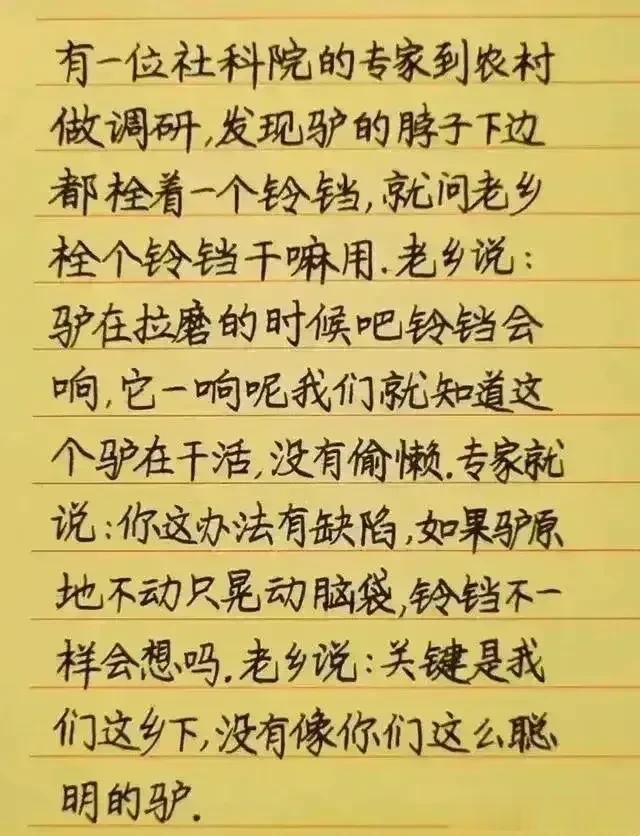 有一位社科院的专家到农村
做调研,发现驴的脖子下边
都栓着一个铃铛,就问老乡
栓个铃铛干嘛用.老乡说:
驴在拉磨的时候吧铃铛会
响,它一响呢我们就知道这
个驴在干活,没有偷懒.专家就
说:你这办法有缺陷,如果驴原
地不动只晃动脑袋,铃铛不一
样会想吗.老乡说:关键是我
们这乡下,没有像你们这么聪
明的驴.